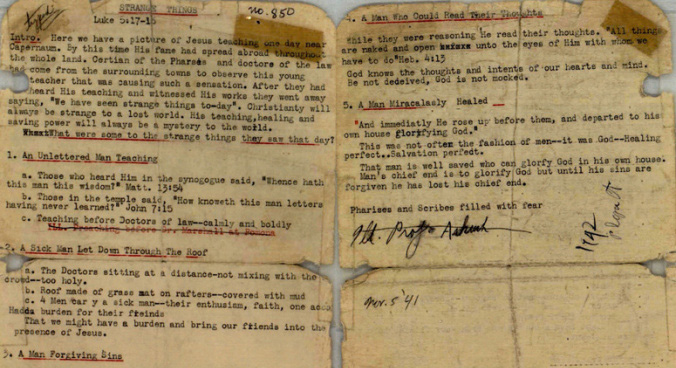 STRANGE THINGS
no. 850
Luke 5:17-16
Intro. Here we have a picture of Jesus teaching one day near
Capernaum. By this time His fame had spread abroad througho-
the whole land. Certian of the Pharses and doctors of the law
had come from the surrounding towns to observe this young
teacher that was causing such a sensation. After they had
heard His teaching and witnessed His works they went away
saying, "We have seen strange things to-day". Christianty will
always be strange to a lost world. His teaching,healing and
saving power will always be a mystery to the world.
What were some to the strange things they saw that day?
1. An Unlettered Man Teaching
a. Those who heard Him in the synogogue said, "Whence hath
this man this wisdom?" Matt. 13:54
b. Those in the temple said, "How knoweth this man letters
having never learned?" John 7:15
c. Teaching before Doctors of law--calmly and boldly
Ill. Preaching before Dr. Marshall at
2. A Sick Man Let Down Through The Roof
a. The Doctors sitting at a distance-not mixing with the
crowd--too holy.
b. Roof made of grass mat on rafters--covered with mud
c. 4 Men car y a sick man--their enthusism, faith, one acco
Hadda burden for their freinds
That we might have a burden and bring our friends into the
presence of Jesus.
3. A Man Forgiving Sins
4. A Man Who Could Read Their Thoughts
While they were reasoning He read their thoughts. "All things
are naked and open unto the eyes of Him with whom we
have to do"Heb. 4:13
God knows the thoughts and intents of our hearts and mind.
Be not deceived, God is not mocked.
5. A Man Miracalasly Healed
"And immediatly He rose up before them, and departed to his
own house glorifying God."
This was not often the fashion of men--it was God--Healing
perfect..Salvation perfect.
That man is well saved who can glorfy God in his own house.
Man's chief end is to glorify God but until his sins are
forgiven he has lost his chief end.
Pharises and Scribes filled with fear
Ill. Prof.
1792
Nov. 5 '41